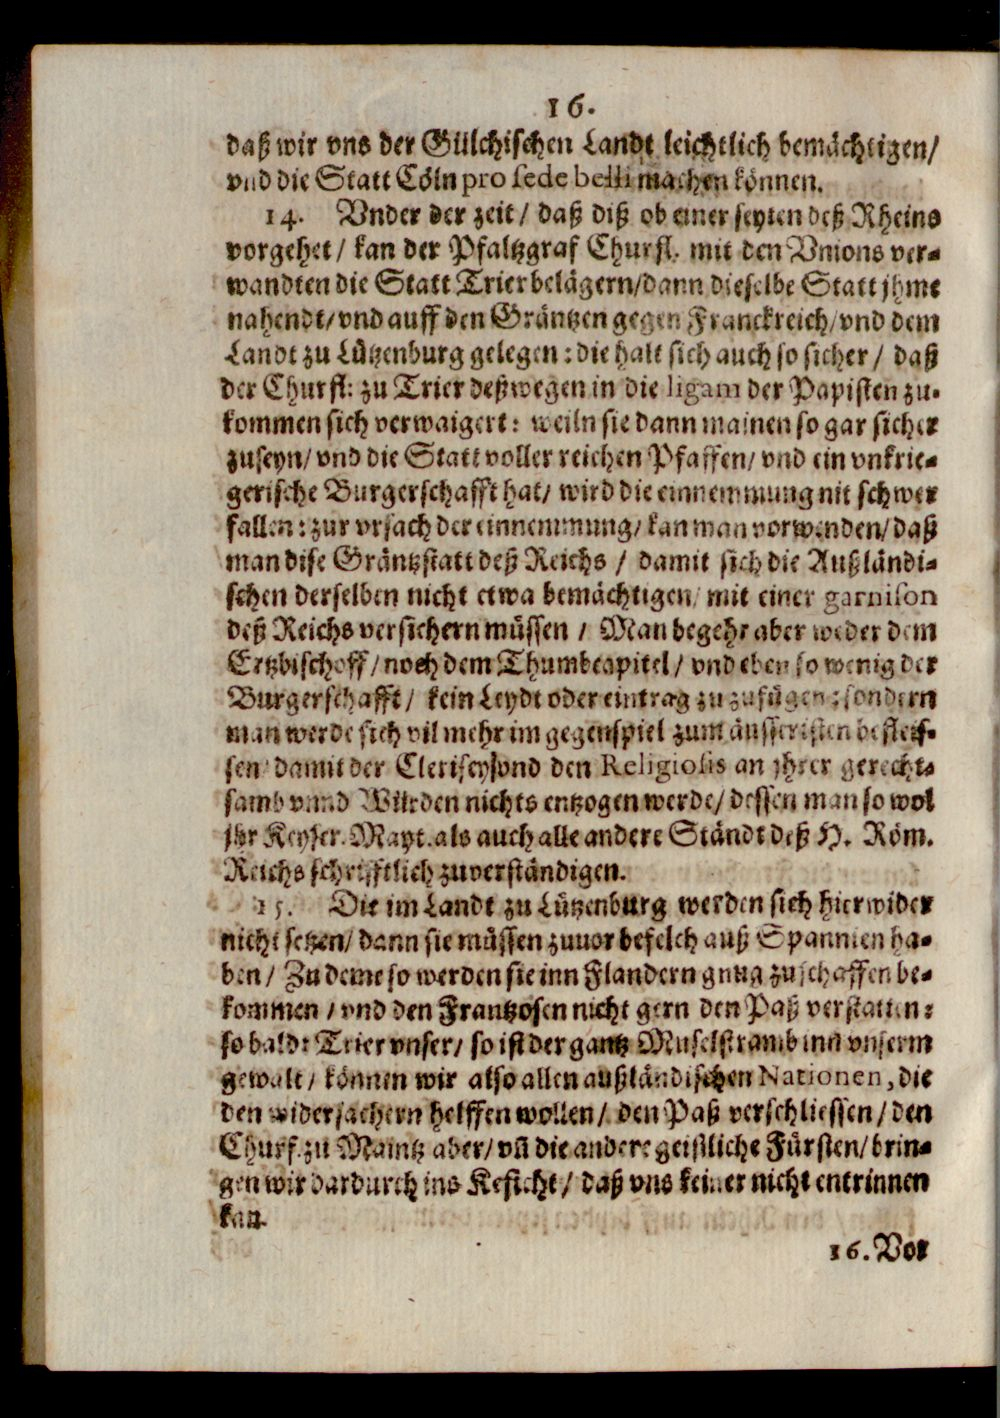 16.
daß wir vns der Gülchischen Landt leichtlich bemächtigen/
vnd die Statt Cöln pro sede belli machen können.
14. Vnder der zeit / daß diß ob einer seyten deß Rheins
vorgehet / kan der Pfaltzgraf Churfl. mit den Vnions ver-
wandten die Statt Trier belägern/dann dieselbe Statt jhme
nahendt/vnd auff den Gräntzen gegen Franckreich/vnd dem
Landt zu Lützenburg gelegen: die halt sich auch so sicher / daß
der Churfl: zu Trier deßwegen in die ligam der Papisten zu-
kommen sich verwaigert: weiln sie dann mainen so gar sicher
zuseyn/ vnd die Statt voller reichen Pfaffen/ vnd ein vnkrie-
gerische Burgerschafft hat/ wird die einnemmung nit schwer
fallen: zur vrsach der einnemmung/ kan man vorwenden/ daß
man dise Gräntzstatt deß Reichs / damit sich die Außländi-
schen derselben nicht etwa bemächtigen/ mit einer garnison
deß Reichs versichern müssen / Man begehr aber weder dem
Ertzbischoff/ noch dem Thumbcapitel/ vnd eben so wenig der
Burgerschafft/ kein Leydt oder eintrag zu zufügen: sondern
man werde sich vil mehr im gegenspiel zum äusseristen befleis-
sen/ damit der Clerisey sond den Religiosis an jhrer gerecht-
samb vnnd Würden nichts entzogen werde/ dessen man so wol
jhr Keyser. Mayt. als auch alle andere Ständt deß H. Röm.
Reichs schrifftlich zuverständigen.
15. Die im Landt zu Lützenburg werden sich hierwider
nicht setzen/ dann sie müssen zuuor befelch auß Spannien ha-
ben / Zu deme so werden sie inn Flandern gnug zuschaffen be-
kommen / vnd den Frantzosen nicht gern den Paß verstatten:
so baldt Trier vnser/ so ist der gantz Muselstramb inn vnserm
gewalt/ können wir also allen außländischen Nationen, die
den widersachern helffen wollen/ den Paß verschliessen / den
Churf. zu Maintz aber/ vñ die andere geistliche Fürsten/ brin-
gen wir dardurch ins Kesicht/ daß vns keiner nicht entrinnen
kan.
16. Vor